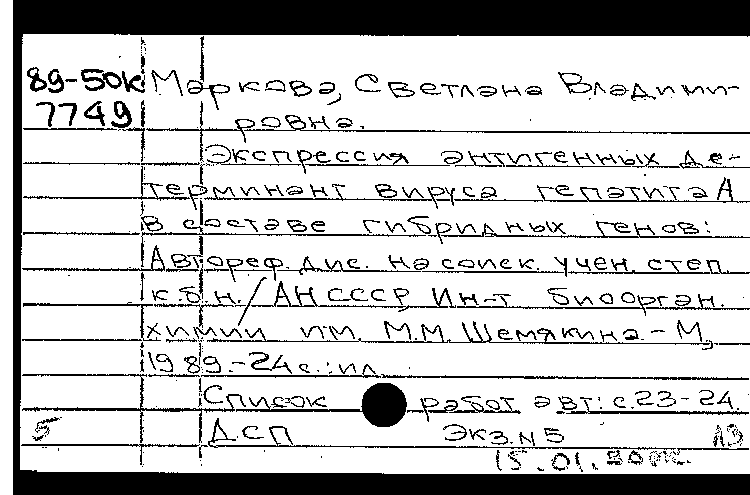 89-50к Маркова, Светлана Владими-
7749 ровна.
Экспрессия антигенных де-
терминант вируса гепатита А
в составе гибридных генов:
Автореф. дис. на соиск. учен. степ.
к.б.н. / АН СССР, Ин-т биоорган.
химии им. М.М. Шемякина - М.,
1989.-24с.:ил.
Список работ авт: с.23-24.
5 ДСП Экз.N5
15.01.